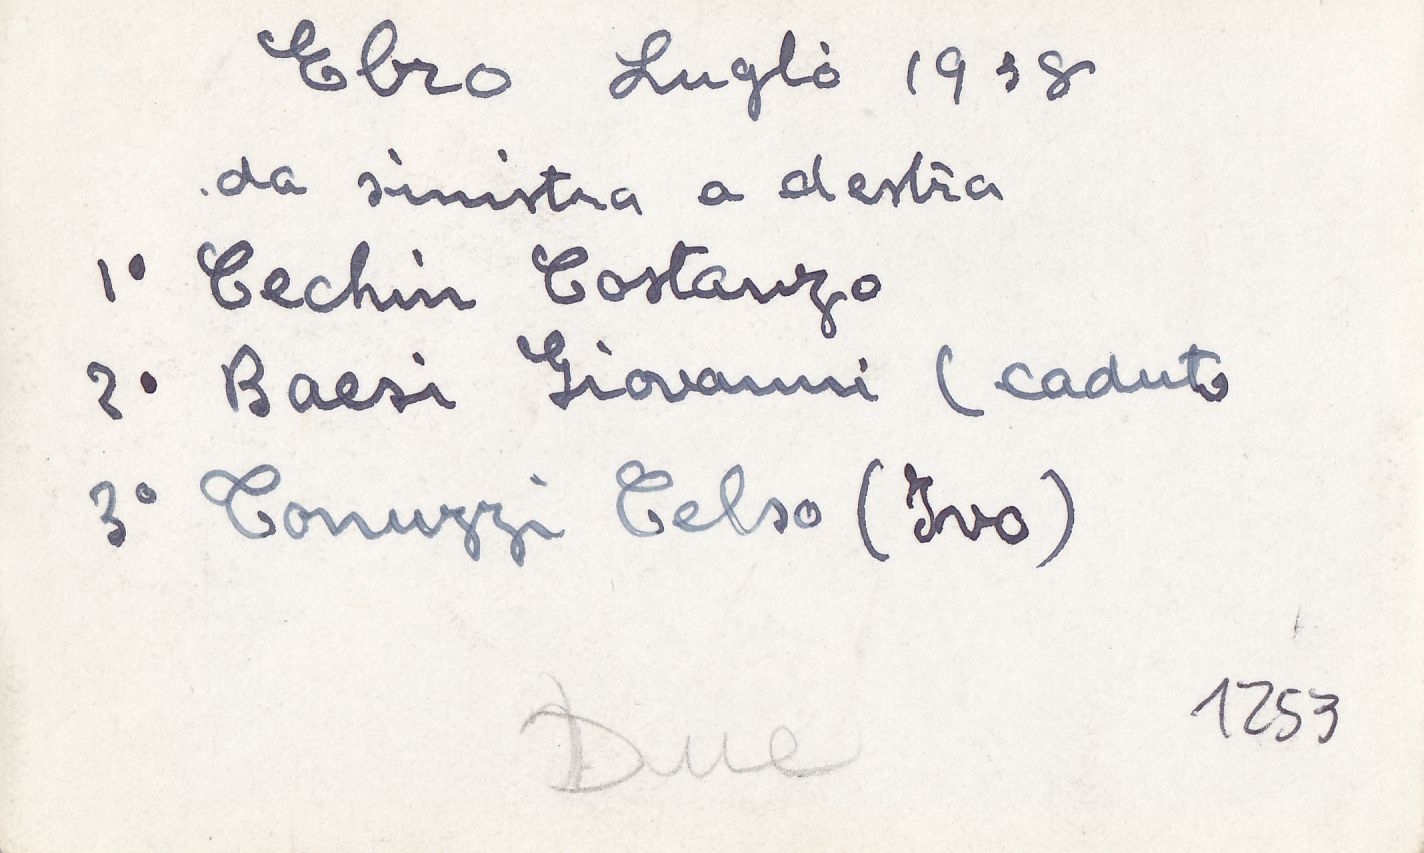 Ebro Luglio 1938
da sinistra a destra
1° Cechin Costanzo
2° Baesi Giovanni (caduto
3° Conuzzi Celso (Ivo)
1253
Due